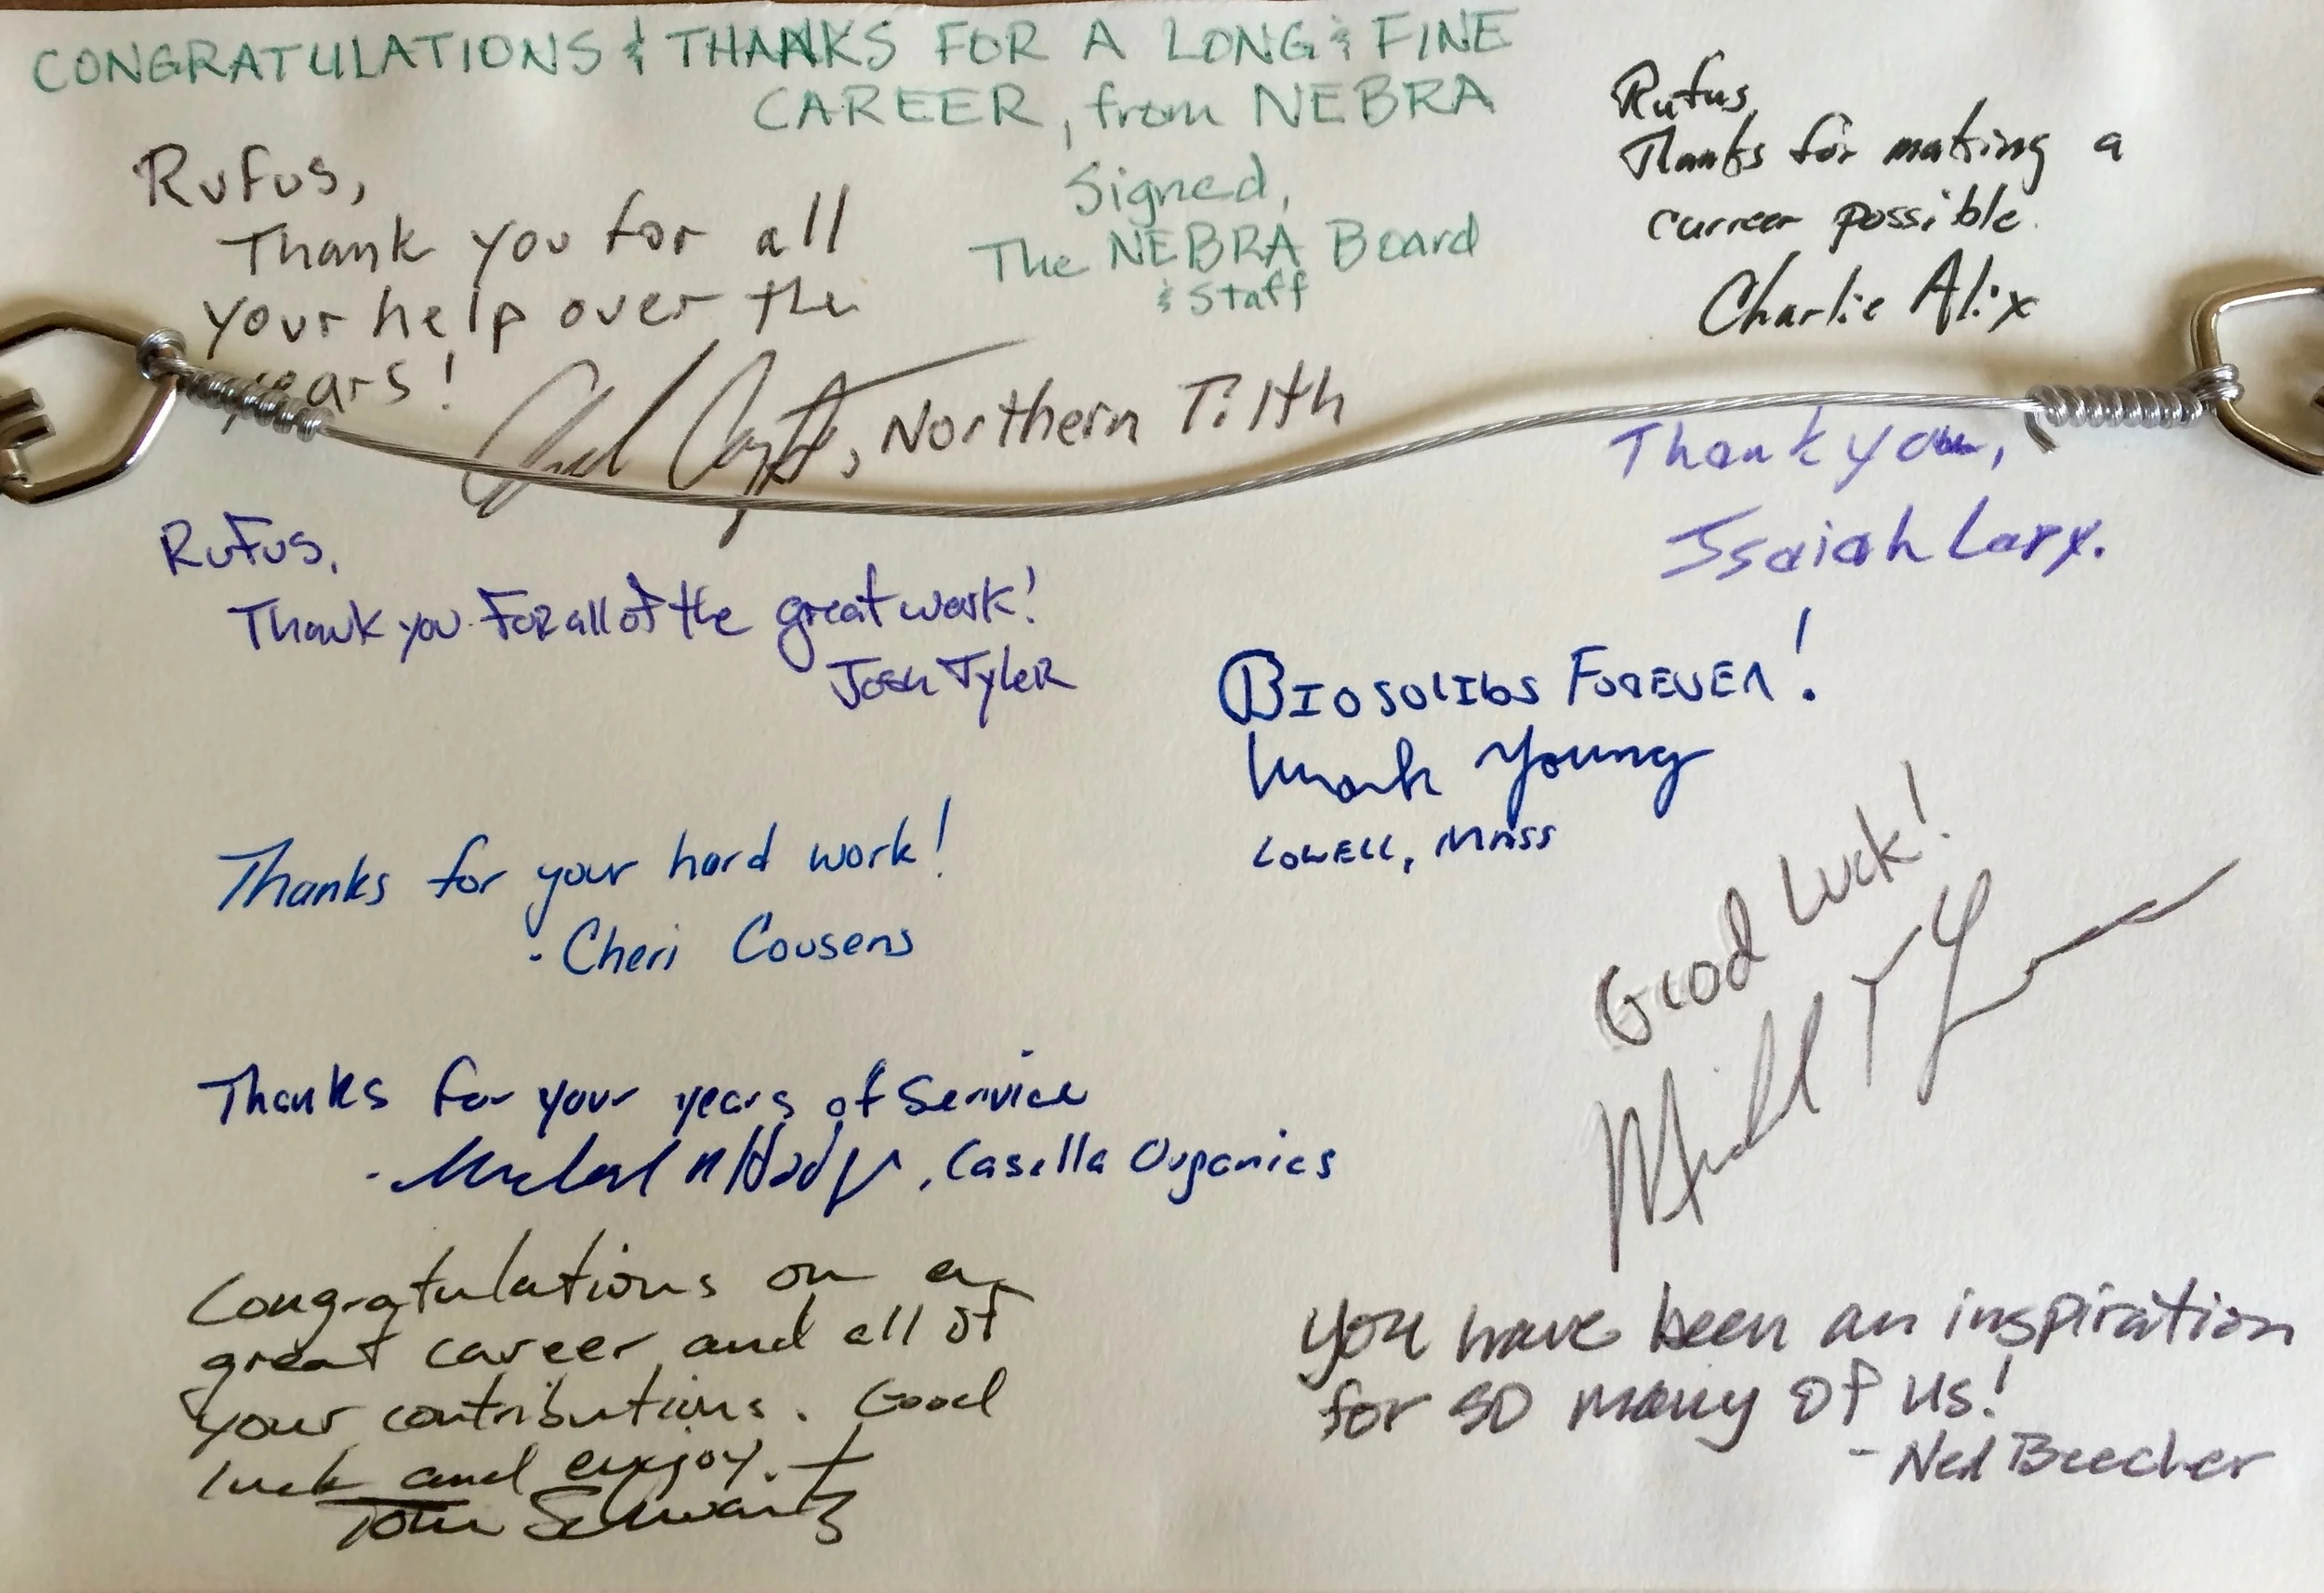 CONGRATULATIONS & THANKS FOR A LONG & FINE
CAREER, from NEBRA
Signed,
The NEBRA Board
& Staff
Rufus,
Thank you for all
your help over the
years!
Northern Tilth
Rufus,
Thanks for making a
career possible.
Charlie Alix
Thank you,
Isaiah Lary.
Rufus,
Thank you For all of the great work!
Josh Tyler
BIOSOLIDS FOREVER!
Mark Young
LOWELL, MASS
Thanks for your hard work!
- Cheri Cousens
Good Luck!
Thanks for your years of Service
- Michael Hodge, Casella Organics
Congratulations on a
great career and all of
your contributions. Good
luck and enjoy.
Tom Schwartz
You have been an inspiration
for so many of us!
- Ned Beecher